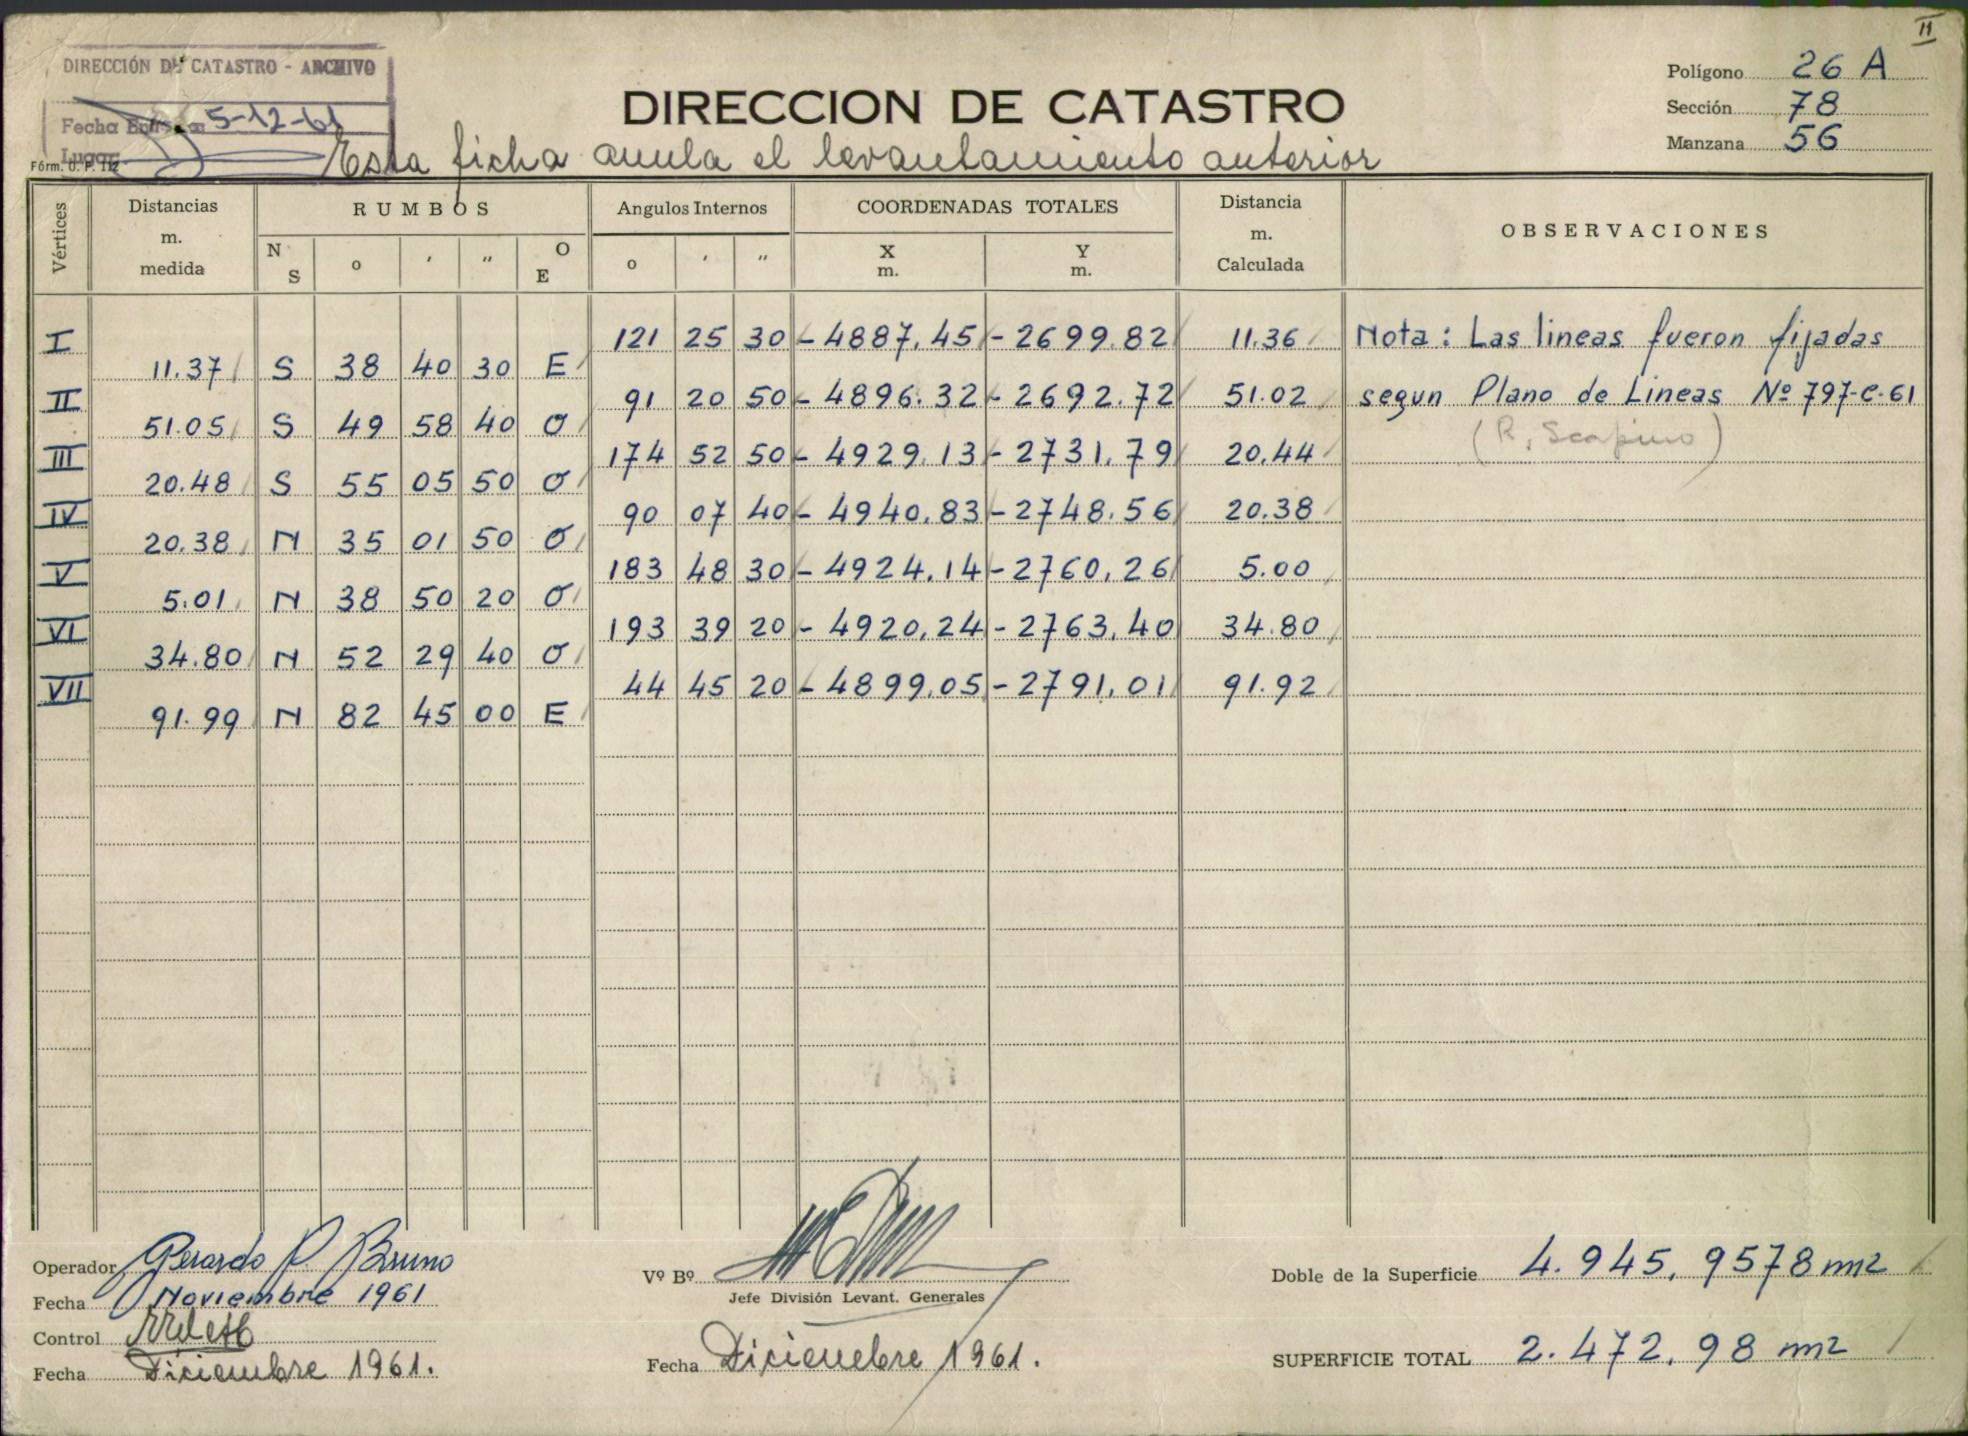 II
DIRECCIÓN DE CATASTRO - ARCHIVO
Fecha 5-12-61
Lugar
Fórm. O. P. 112
DIRECCION DE CATASTRO
Esta ficha anula el levantamiento anterior
Polígono 26 A
Sección 78
Manzana 56
Vértices Distancias m. medida RUMBOS Angulos Internos COORDENADAS TOTALES Distancia m. Calculada OBSERVACIONES
N S o ′ ″ O E o ′ ″ X m. Y m.
I 121 25 30 - 4887.45 - 2699.82 11.36 Nota: Las lineas fueron fijadas
11.37 S 38 40 30 E
II 91 20 50 - 4896.32 - 2692.72 51.02 segun Plano de Lineas Nº 797-C-61
51.05 S 49 58 40 O
(R. Scapino)
III 174 52 50 - 4929.13 - 2731.79 20.44
20.48 S 55 05 50 O
IV 90 07 40 - 4940.83 - 2748.56 20.38
20.38 N 35 01 50 O
V 183 48 30 - 4924.14 - 2760.26 5.00
5.01 N 38 50 20 O
VI 193 39 20 - 4920.24 - 2763.40 34.80
34.80 N 52 29 40 O
VII 44 45 20 - 4899.05 - 2791.01 91.92
91.99 N 82 45 00 E
Operador Gerardo P. Bruno
Fecha Noviembre 1961
Control
Fecha Diciembre 1961.
Vº Bº
Jefe División Levant. Generales
Fecha Diciembre 1961.
Doble de la Superficie 4.945,9578 m2
SUPERFICIE TOTAL 2.472,98 m2